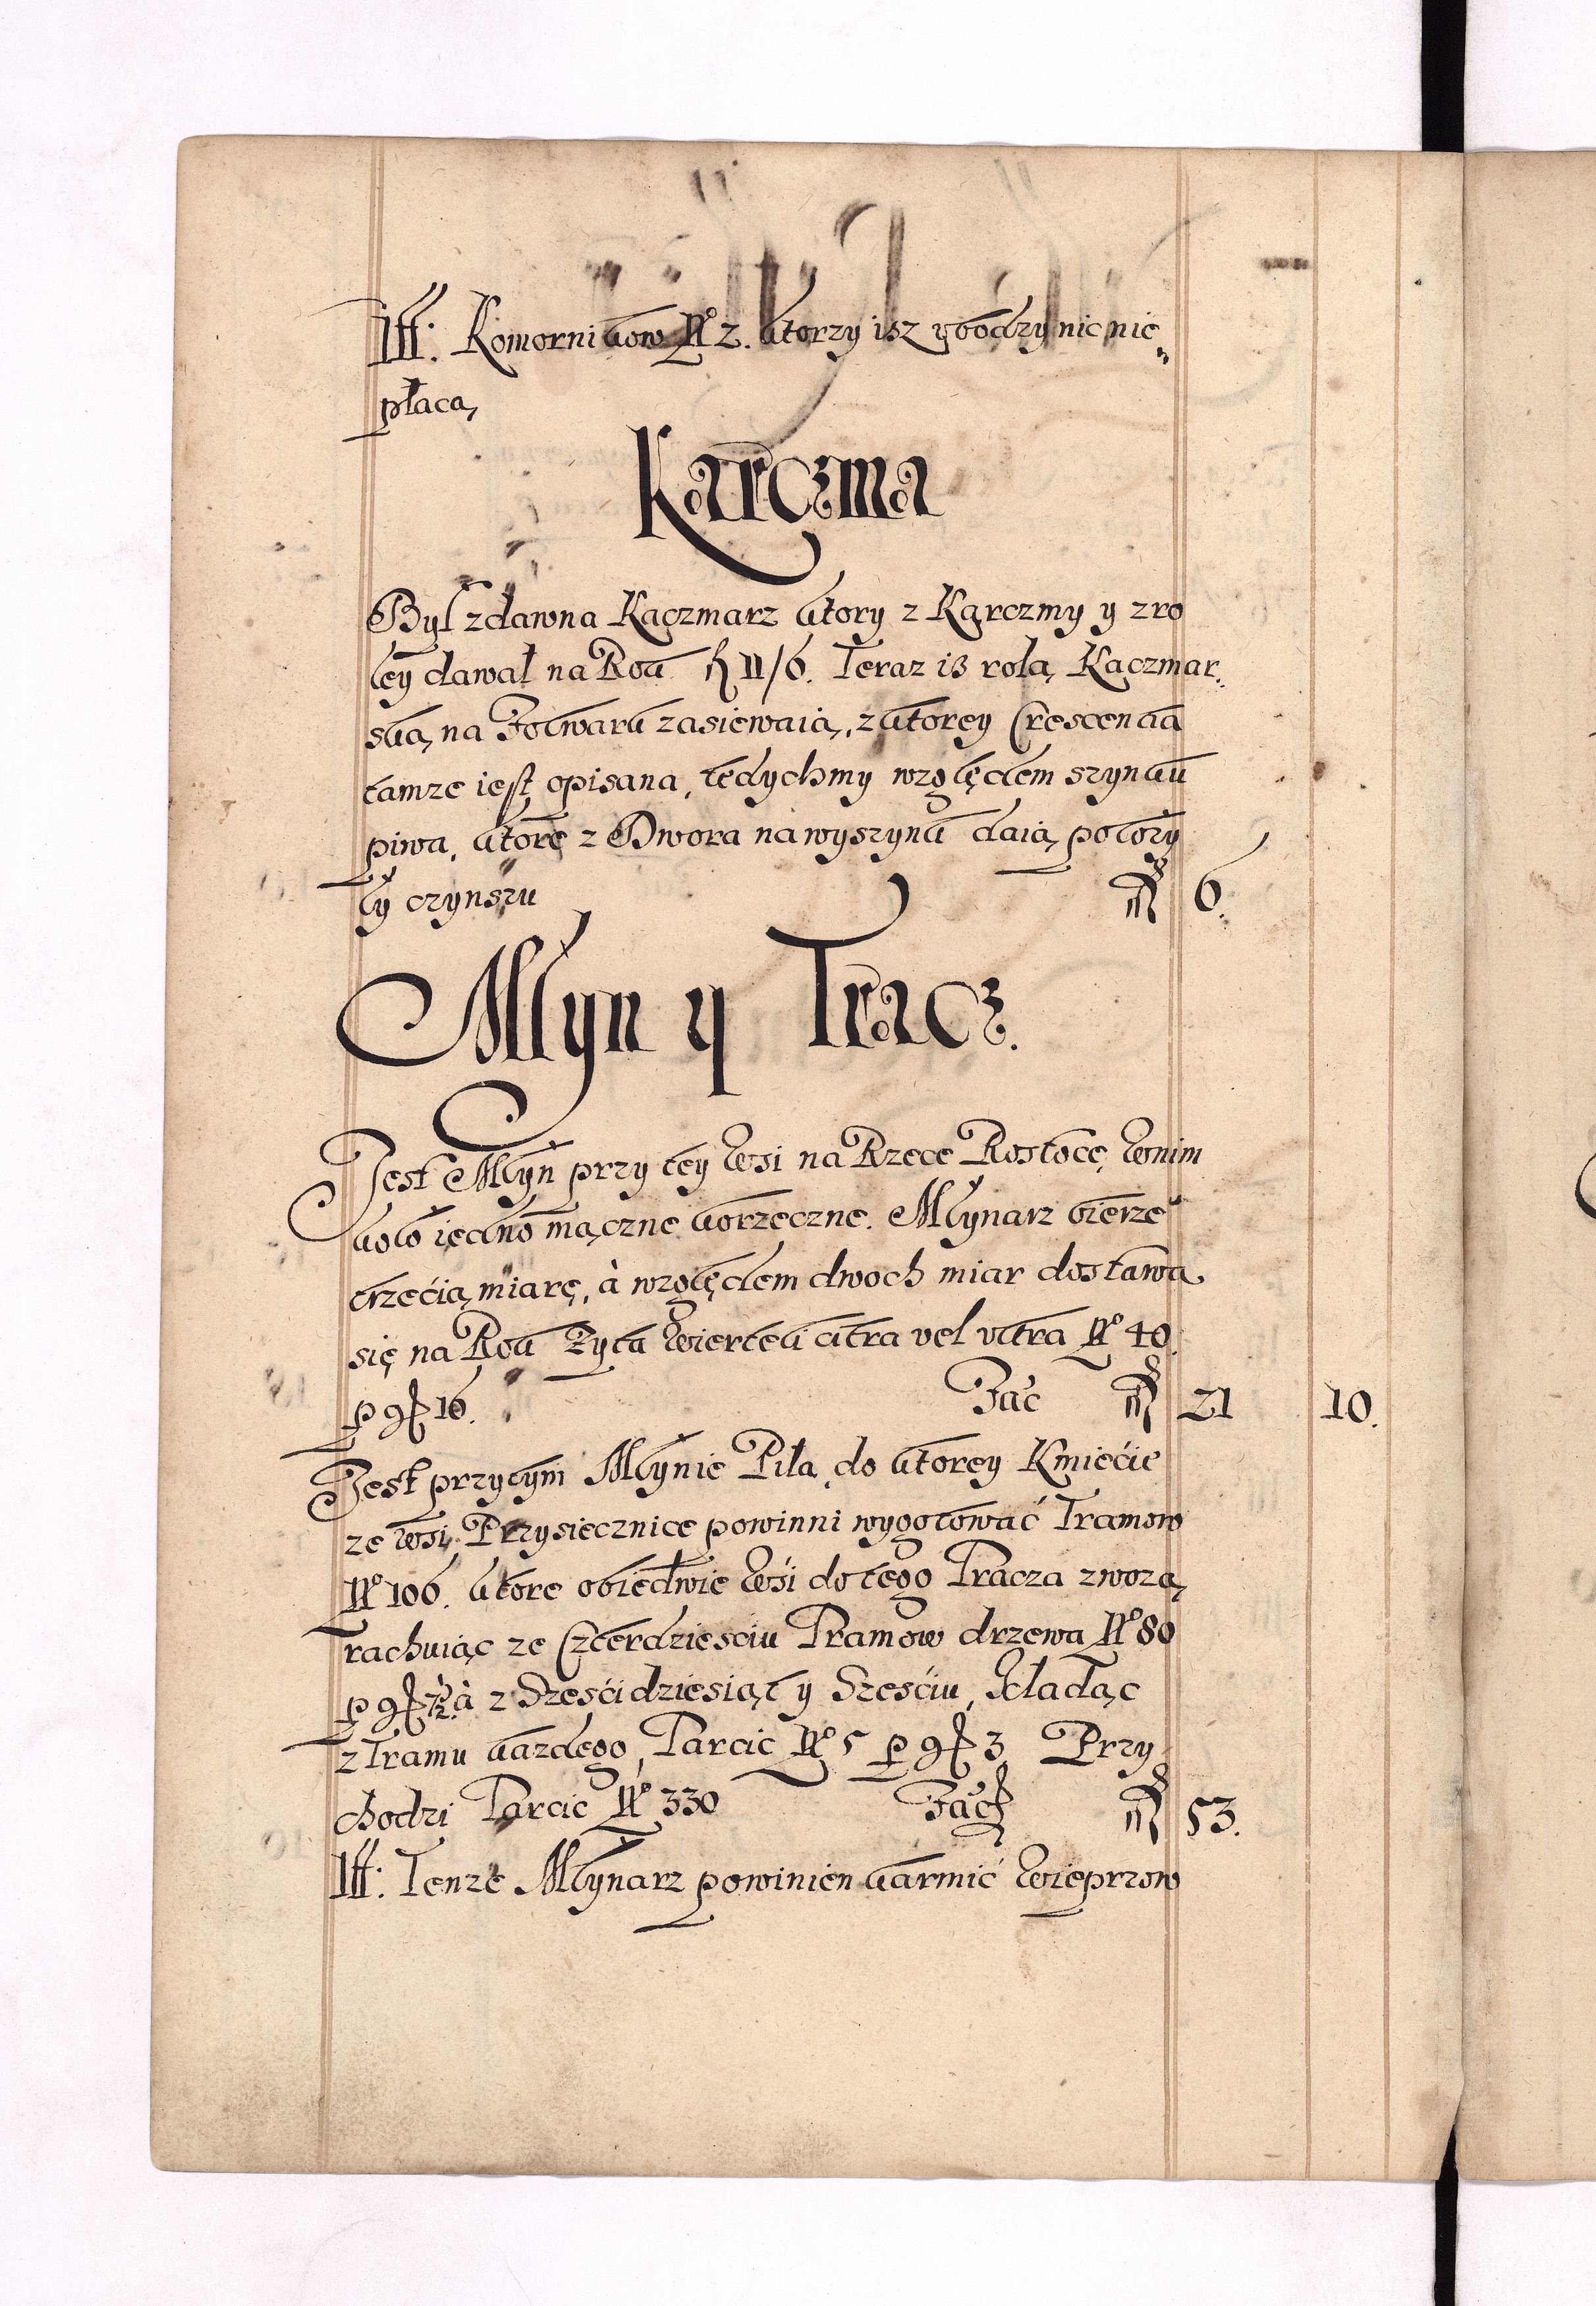 Itt: Komornikow No 2. ktorzy isz ubodzy nic nie
płacą
Karczma
Był zdawna Kaczmarz ktory z Karczmy y z ro
ley dawał na Rok fl 11/6. Teraz isz rolą Kaczmar
ską na Folwark zasiewaią, z ktorey Crescentia
tamze iest opisana, tedychmy względem szynku
piwa, ktore z Dwora na wyszynk daią położy
ly czynszu fl 6.
Młyn y Tracz.
Jest Młyn przy tey Wsi na Rzece Rostoce, w nim
koło iedno mączne korzeczne. Młynarz bierze
trzecią miarę, à względem dwoch miar dostawa
się na Rok Zyta Wiertel citra vel ultra No 40.
p gr 16. Fac fl 21 10.
Jest przytym Młynie Piła, do ktorey Kmiećie
ze Wsi Przysiecznice powinni wygotować Tramow
No 106. ktore obiedwie Wśi do tego Tracza zwozą,
rachuiąc ze Czterdziesciu Tramow drzewa No 80
p gr à z Sześćidziesiąt y Sześćiu, Kładąc
z Tramu kazdego, Tarcic No 5 p gr 3 Przy
chodzi Tarcic No 330 Fac fl 53.
Itt: Tenze Młynarz powinien karmić Wieprzow